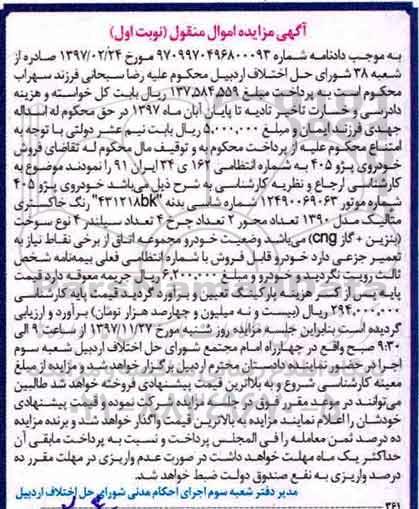 آگهی مزایده اموال منقول (نوبت اول)
به موجب دادنامه شماره ۹۷۰۹۹۷۰۴۹۶۸۰۰۰۹۳ مورخ ۱۳۹۷/۰۲/۲۴ صادره از
شعبه ۳۸ شورای حل اختلاف اردبیل محکوم علیه رضا سبحانی فرزند سهراب
محکوم است به پرداخت مبلغ ۱۳۷,۵۸۴,۵۵۹ ریال بابت کل خواسته و هزینه
دادرسی و خسارت تاخیر تادیه تا پایان آبان ماه ۱۳۹۷ در حق محکوم له اسداله
جهدی فرزند ایمان و مبلغ ۵,۰۰۰,۰۰۰ ریال بابت نیم عشر دولتی با توجه به
امتناع محکوم علیه از پرداخت محکوم به و توقیف مال محکوم له تقاضای فروش
خودروی پژو ۴۰۵ به شماره انتظامی ۱۶۲ ی ۳۴ ایران ۹۱ را نمودند موضوع به
کارشناسی ارجاع و نظریه کارشناسی به شرح ذیل می‌باشد خودروی پژو ۴۰۵
شماره موتور ۱۲۴۹۰۰۶۹۰۶۳ شماره شاسی بدنه "۴۳۱۲۱۸bk" رنگ خاکستری
متالیک مدل ۱۳۹۰ تعداد محور ۲ تعداد چرخ ۴ تعداد سیلندر ۴ نوع سوخت
(بنزین + گاز cng) می‌باشد وضعیت خودرو مجموعه اتاق از برخی نقاط نیاز به
تعمیر جزعی دارد خودرو قابل فروش با شماره انتظامی فعلی بیمه‌نامه شخص
ثالث رویت نگردید و خودرو و مبلغ ۶,۲۰۰,۰۰۰ ریال جریمه معوقه دارد قیمت
پایه پس از کسر هزینه پارکینگ تعیین و برآورد گردید قیمت پایه کارشناسی
۲۹۴,۰۰۰,۰۰۰ ریال (بیست و نه میلیون و چهارصد هزار تومان) برآورد و ارزیابی
گردیده است بنابراین جلسه مزایده روز شنبه مورخ ۱۳۹۷/۱۱/۲۷ از ساعت ۹ الی
۹:۳۰ صبح واقع در چهارراه امام مجتمع شورای حل اختلاف اردبیل شعبه سوم
اجرا در حضور نماینده دادستان محترم اردبیل برگزار خواهد شد و مزایده از مبلغ
معینه کارشناسی شروع و به بالاترین قیمت پیشنهادی فروخته خواهد شد طالبین
می‌توانند در موعد مقرر فوق در جلسه مزایده شرکت نموده و قیمت پیشنهادی
خودشان را اعلام نمایند مزایده به بالاترین قیمت واگذار خواهد شد و برنده مزایده
ده درصد ثمن معامله را فی المجلس پرداخت و نسبت به پرداخت مابقی آن
حداکثر یک ماه مهلت خواهد داشت در صورت عدم واریزی در مهلت مقرر ده
درصد واریزی به نفع صندوق دولت ضبط خواهد شد.
مدیر دفتر شعبه سوم اجرای احکام مدنی شورای حل اختلاف اردبیل
۳۶۱